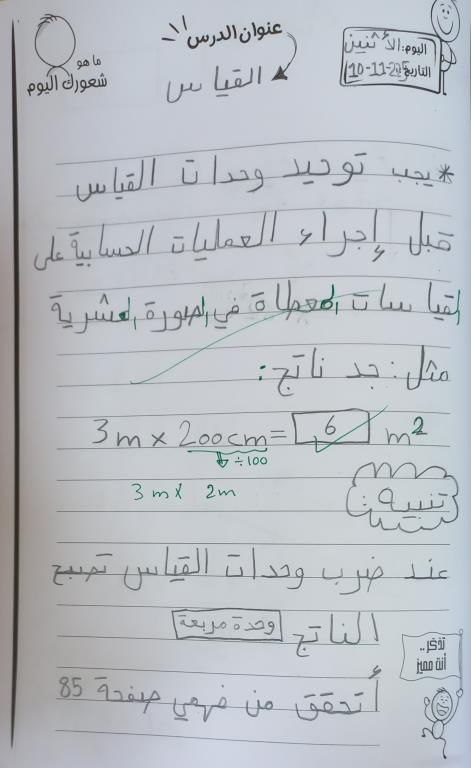 عنوان الدرس
اليوم: الأثنين
التاريخ: 10-11-2025
ما هو
شعورك اليوم
القياس
* يجب توحيد وحدات القياس
قبل إجراء العمليات الحسابية على
القياسات المعطاة في الصورة العشرية
مثل: جد ناتج:
3m × 200cm = 6 m²
÷100
3m × 2m
تنبيه:
عند ضرب وحدات القياس تصبح
الناتج وحدة مربعة
أتحقق من فهمي صفحة 85
تذكر..
أنت مميز